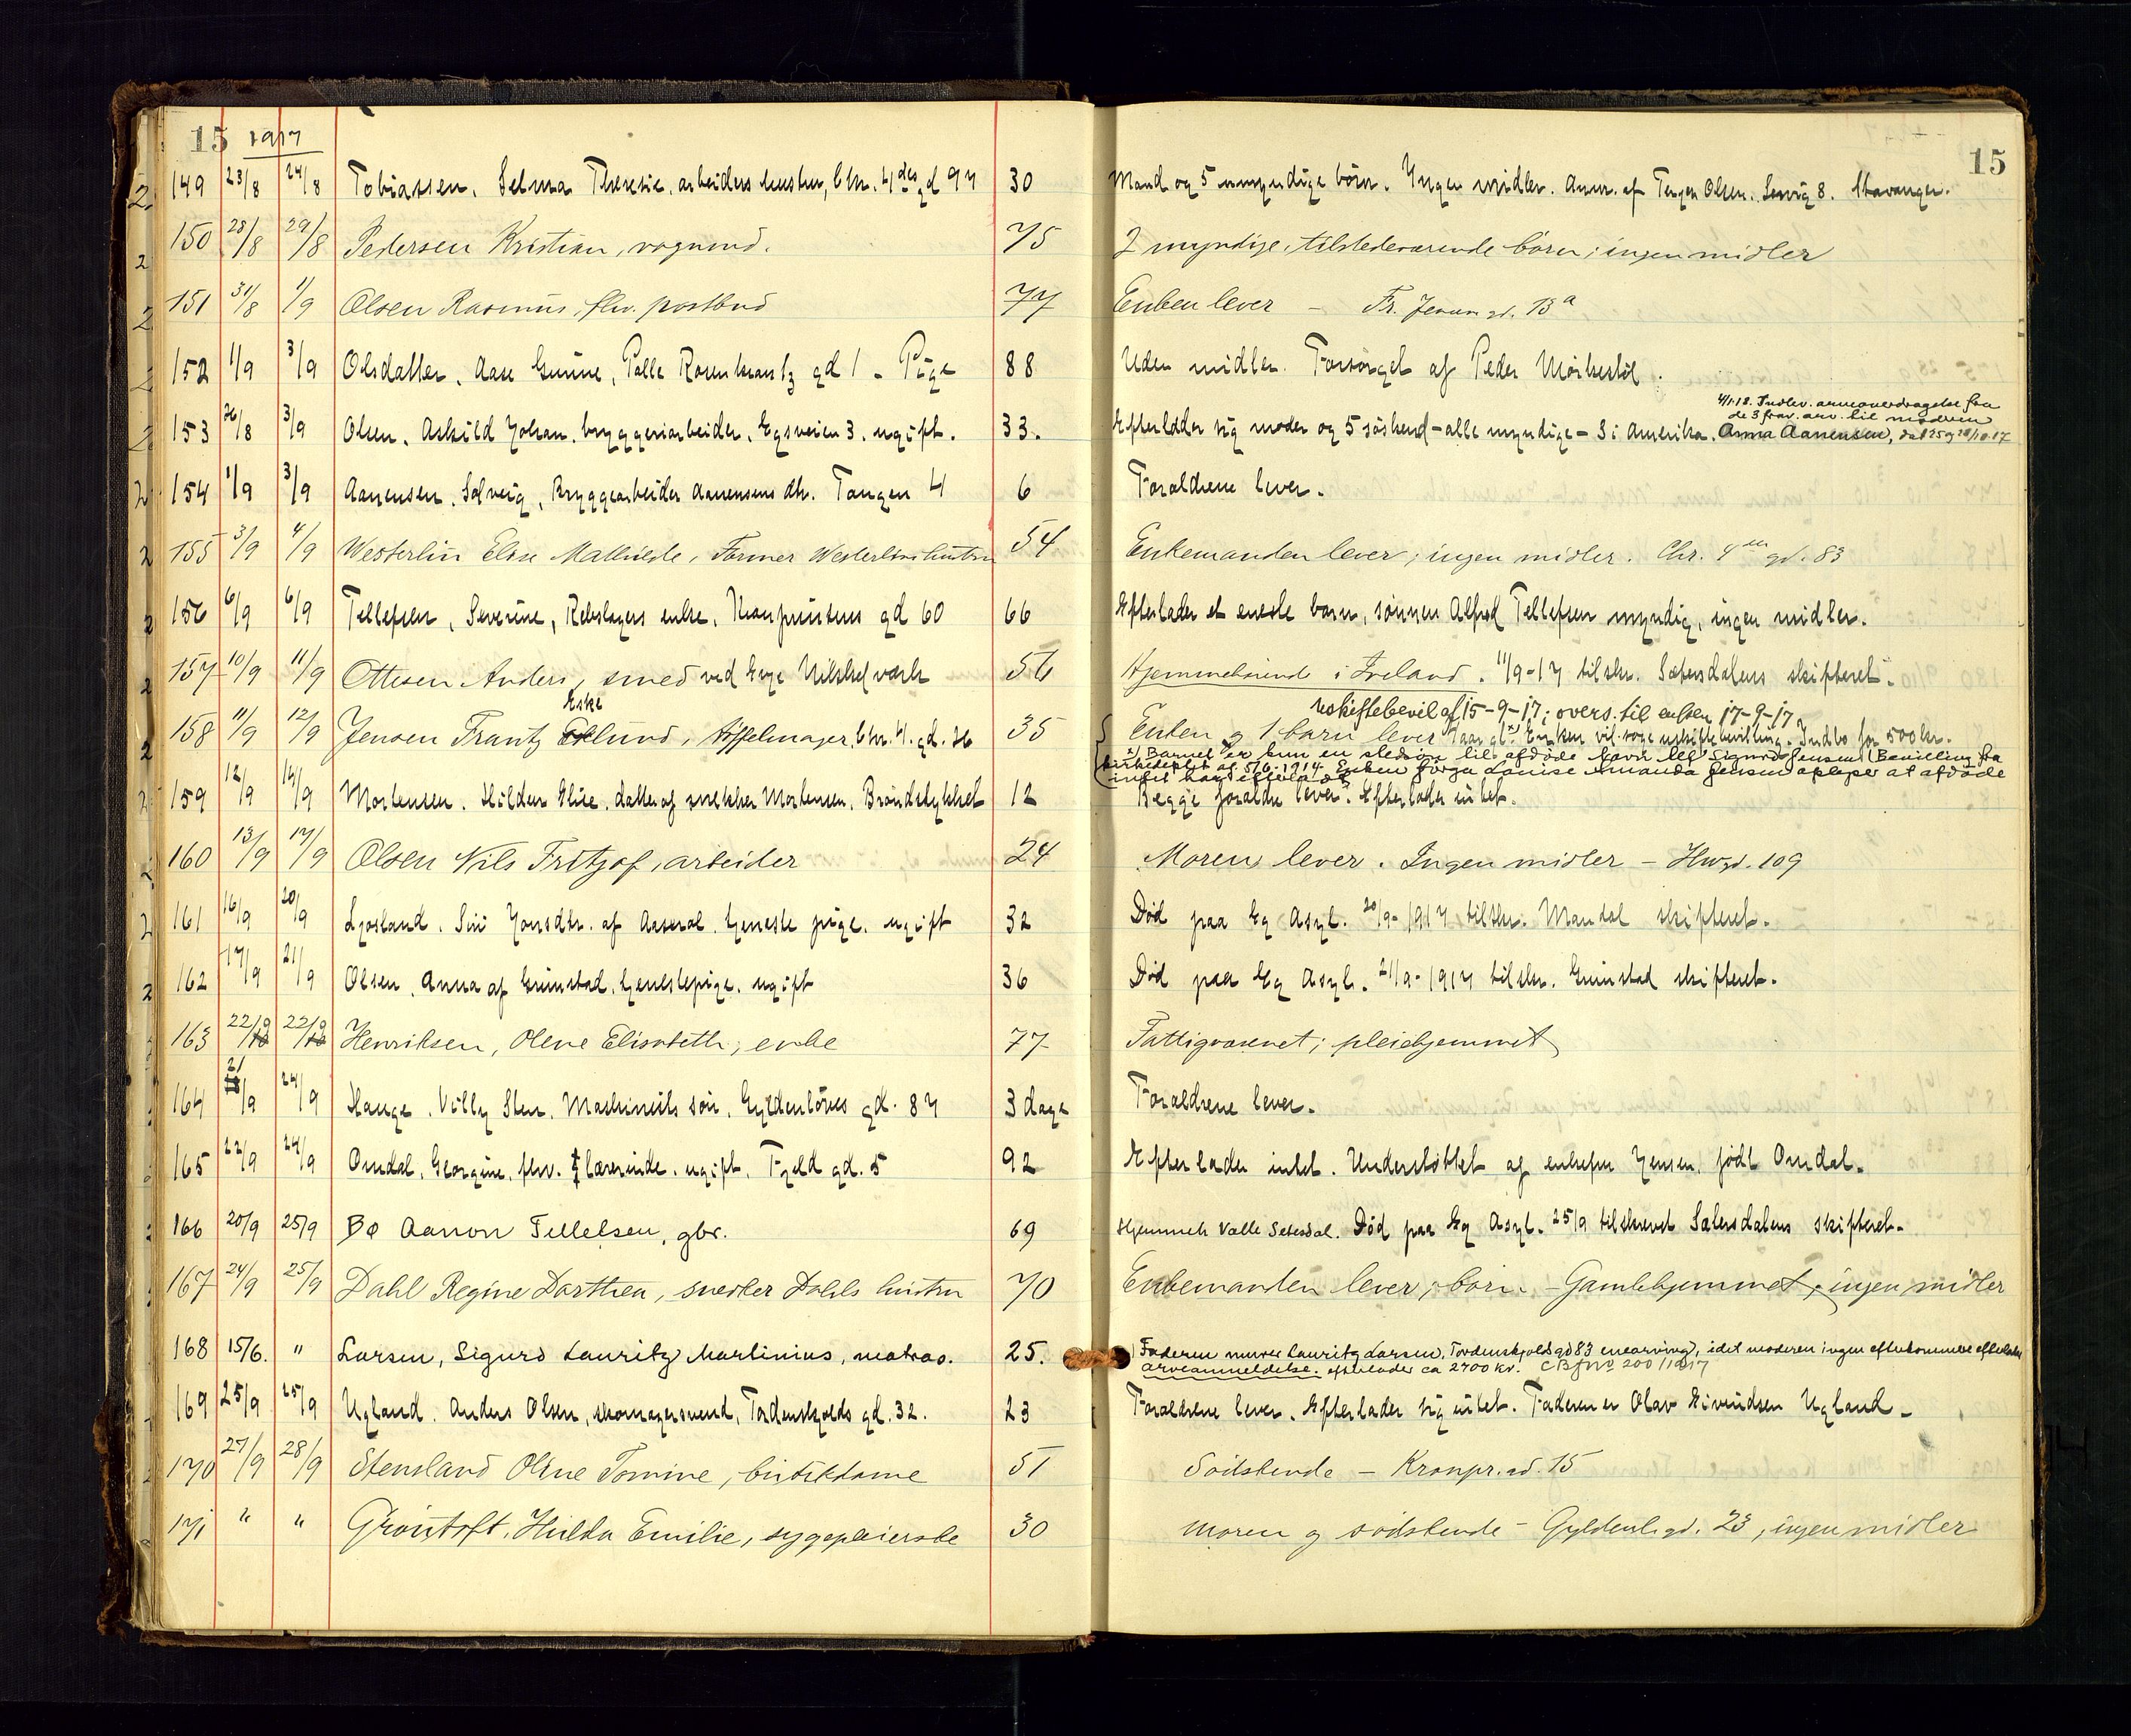 15 1917
15
149 23/8 24/8 Tobiassen, Selma Theresie, arbeiders hustru, Chr. 4des gd 97 30 Mand og 5 umyndige børn. Ingen midler. Anm. af Terjen Olsen. 8. Stavanger.
150 28/8 29/8 Pedersen Kristian, vognmd. 75 2 myndige, tilstedeværende børn; ingen midler
151 31/8 1/9 Olsen Rasmus, fhv. postbud 77 Enken lever – Fr. gd. 13a
152 1/9 3/9 Olsdatter, Aase Gurine, Palle Rosenkrantz gd 1 – Pige 88 Uden midler. Forsørget af Peder Mørkestøl.
4/1.18. Indlev. arveoverdragelse fra
de 3 frav. arv. til moderen
153 26/8 3/9 Olsen, Askild Johan, bryggeriarbeider, Egsveien 3. ugift. 33. Efterlader sig moder og 5 søskend – alle myndige – 3 i Amerika. Anna Aanensen, dat 25 og 28/10.17
154 1/9 3/9 Aanensen, Solveig, Bryggearbeider Aanensens dtr. Tangen 4 6 Forældrene lever.
155 3/9 4/9 Westerlin Elise Mathilde, Former Westerlins hustru 54 Enkemanden lever; ingen midler. Chr. 4den gd. 83
156 6/9 6/9 Tellefsen, Severine, Rebslagers enke, Kronprinsens gd 60 66 Efterlader et eneste barn, sønnen Alfred Tellefsen myndig, ingen midler.
157 10/9 11/9 Ottesen Anders, smed ved Evje Nikkelværk 56 Hjemmehørende i Iveland. 11/9-17 tilskr. Sætersdalens skifteret.
Eske uskiftebevil af 15-9-17; overs. til enken 17-9-17
158 11/9 12/9 Jensen Frantz Eklund, tøffelmager, Chr. 4. gd. 26 35 Enken og 1 barn lever 7 aar gl. x) Enken vil søge uskiftebevilling. Indbo for 500 kr.
x) Barnet er kun en stedsøn til afdøde navn Sigurd Jensen (Bevilling fra
af 5/6.1914. Enken Louise Amanda Jensen oplyser at afdøde
intet har efterladt
159 12/9 14/9 Mortensen, Hildur Elise, datter af snekker Mortensen, Brøndstykket 12 Begge forældre lever. Efterlader intet.
160 13/9 17/9 Olsen Nils Fritjof, arbeider 24 Moren lever. Ingen midler – gd. 109
161 16/9 20/9 Ljosland, Siri Jonsdtr. af Aaseral, tjenestepige, ugift 32 Død paa Eg Asyl. 20/9-1917 tilskr. Mandal skifteret.
162 17/9 21/9 Olsen, Anna af Grimstad, tjenestepige, ugift 36 Død paa Eg Asyl. 21/9-1917 tilskr. Grimstad skifteret.
163 22/9 22/9 Henriksen, Olene Elisabeth, enke 77 Fattigvæsenet; pleiehjemmet
164 21/9 24/9 Hauge, Villy Sten, Maskinists søn, Gyldenløves gd. 87 3 dage Forældrene lever.
165 22/9 24/9 Omdal, Georgine, fhv. lærerinde, ugift, Fjeld gd. 5 92 Efterlader intet. Understøttet af enkefru Jensen, født Omdal.
166 20/9 25/9 Bø Aanon Tellefsen, gbr. 69 Hjemmeh Valle Setesdal. Død paa Eg Asyl. 25/9 tilskrevet Sætersdalens skifteret.
167 24/9 25/9 Dahl Regine Dorthea, snedker Dahls hustru 70 Enkemanden lever, børn. – Gamlehjemmet; ingen midler
168 15/6. " Larsen, Sigurd Lauritz Martinius, matros. 25. Faderen murer Lauritz Larsen, Tordenskjolds gd 83 enearving, idet moderen ingen efterkommere efterlader
arveanmeldelse. efterlader ca 2700 kr. CBf No 200/1917
169 25/9 25/9 Ugland, Anders Olsen, skomagersvend, Tordenskjolds gd. 32. 23 Forældrene lever. Efterlader sig intet. Faderen er Olav Eivindsen Ugland –
170 27/9 28/9 Stensland Oline Tomine, butikdame 51 Sødskende – Kronpr. gd. 15
171 " " Grøntoft, Hilda Emilie, sygepleierske 30 Moren og sødskende – Gyldenl. gd. 23, ingen midler